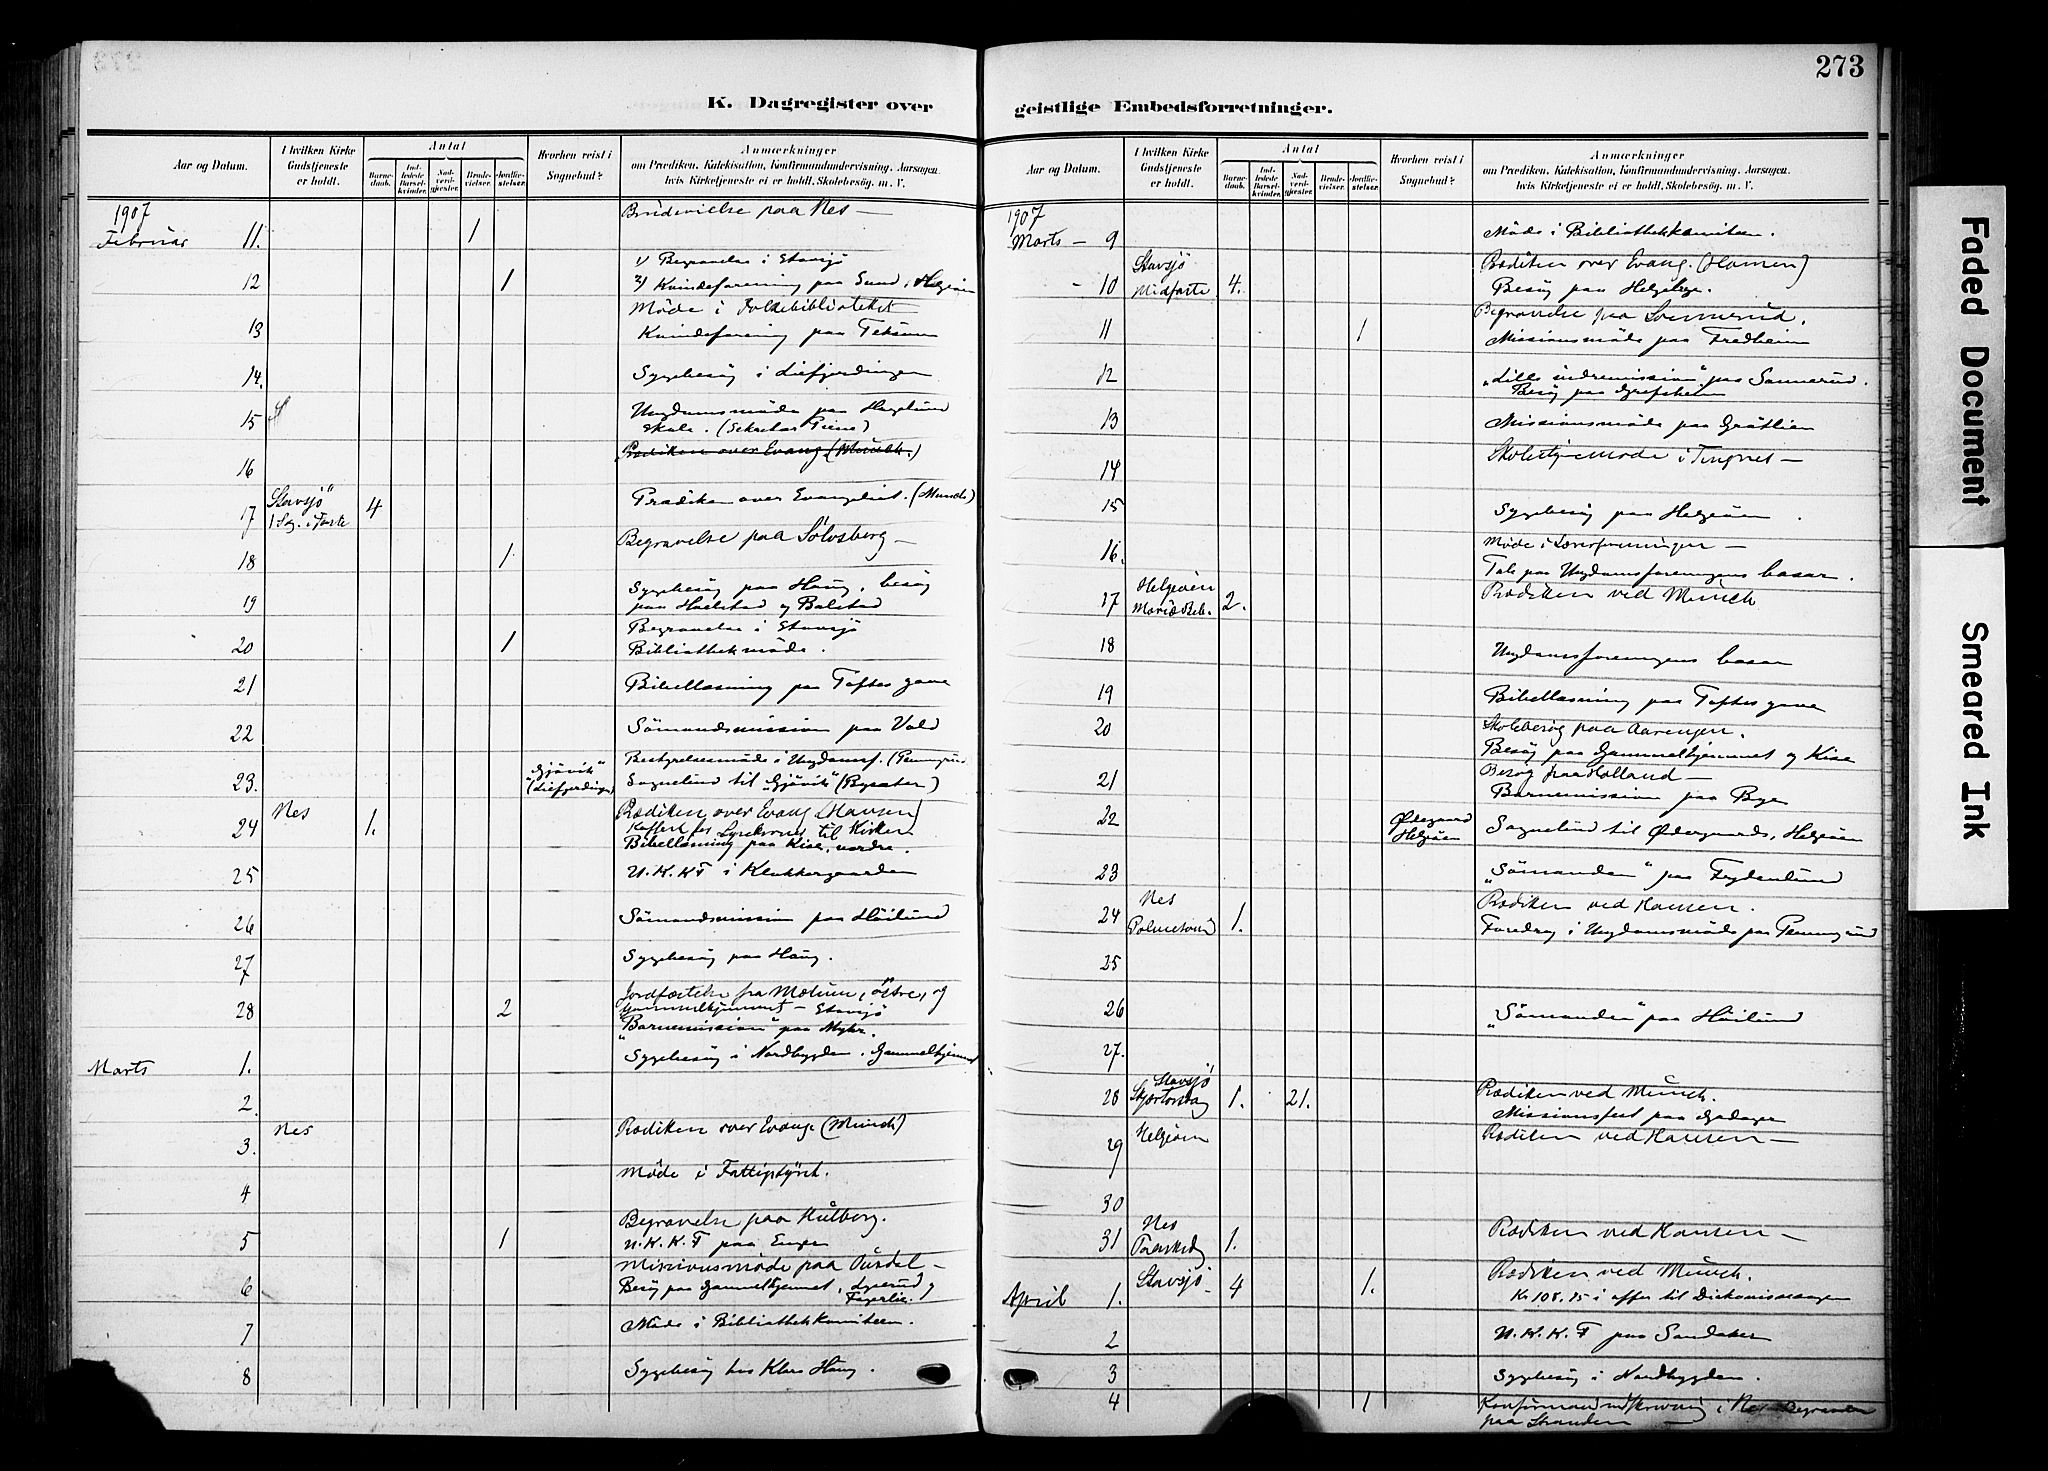 273
K. Dagregister over geistlige Embedsforretninger.
Aar og Datum.
I hvilken Kirke Gudstjeneste er holdt.
Antal
Barnedaab.
Indledede Barselkvinder.
Nadverdgjester.
Brudevielser.
Jordfæstelser.
Hvorhen reist i Sognebud?
Anmærkninger
om Prædiken, Katekisation, Konfirmandundervisning, Aarsagen,
hvis Kirketjeneste ei er holdt, Skolebesøg, m. V.
1907
Februar 11. 1 Brudevielse paa Nes —
12 1 1) Begravelse i Stavsjö
2) Kvindeforening paa Sund, Helgöen
13 Möde i Folkebiblioteket
Kvindeforening paa Teksum
14. Sygebesög i Liefjerdingen
15 Ungdomsmöde paa Hagelund
Skole. (Sekretær Tiene)
16 Prædiken over Evang (Münch.)
17 Stavsjö 1 Sø. i Faste 4 Prædiken over Evangeliet. (Munch)
18 1 Begravelse paa Sölvsberg —
19 Sygebesög paa Haug, besög
paa Hoelstad og Balstad
20 1 Begravelse i Stavsjö
Bibliothekmöde.
21 Bibellæsning paa Toftes gave
22 Sömandsmission paa Vold
23. "Gjövik" (Liefjerdingen) Bestyrelsesmöde i Ungdomsf. (Pennigrud)
Sognebud til "Gjövik" (Bysæter)
24 Nes 1. Prædiken over Evang (Hansen)
Kaffert for Lysekroner til Kirken
Bibellæsning paa Kise, nordre.
25 U.K.K.F i Klokkergaarden
26 Sömandsmission paa Höilund
27 Sygebesög paa Haug.
28 2 Jordfæstelse fra Mælum, östre, og
Gammelhjemmet — Stavsjö
"Barnemission" paa Myhr.
Marts 1. Sygebesög i Nordbygden. Gammelhjemmet
2.
3. Nes Prædiken over Evang (Münch)
4 Möde i Fattigstyret.
5 1 Begravelse paa Hulberg.
U.K.K.F paa Enger
6 Missionsmöde paa Pürdal —
Besög paa Gammelhjemmet, Lyserud og
Fagerlie.
7 Möde i Bibliothekkomiteen.
8 Sygebesög hos Klara Haug.
1907
Marts — 9 Möde i Bibliothekkomiteen.
10 Stavsjö Midfaste 4. Prædiken over Evang. (Hansen)
Besög paa Helgeberge.
11 1 Begravelse paa Svennerud.
Missionsmöde paa Fredheim
12 "Lille indremission" paa Sannerud.
Besög paa Grefsheim
13 Missionsmöde paa Gråtlien
14 Skolestyremöde i Tingnes —
15 Sygebesög paa Helgeöen.
16. Möde i Lærerforeningen —
Tale paa Ungdomsforeningens basar.
17 Helgeöen Mariæ Beb. 2. Prædiken ved Münch
18 Ungdomsforeningens basar
19 Bibellæsning paa Toftes gave
20 Skolebesög paa Aarengen.
Besög paa Gammelhjemmet og Kise
21 Besög paa Holland —
Barnemission paa Bye
22 Ødegaard Helgeöen Sognebud til Ødegaards, Helgeöen
23 "Sömanden" paa Frydenlund
24 Nes Palmesönd 1. Prædiken ved Hansen.
Foredrag i Ungdomsmöde paa Pennigrud
25
26 "Sömanden" paa Höilund
27.
28 Stavsjö Skjærtorsdag 1. 21. Prædiken ved Münch.
Missionsfest paa Gjedager
29 Helgöen Prædiken ved Hansen —
30
31 Nes Paaskedag 1. Prædiken ved Hansen —
April 1. Stavsjö 4 1. Prædiken ved Münch.
Kr 108.75 i offer til Diakonissesagen
2 U.K.K.F paa Sandaker
3 Sygebesög i Nordbygden.
4 1 Konfirmandindskrivning i Nes. Begravelse
paa Stranden
Faded Document
Smeared Ink